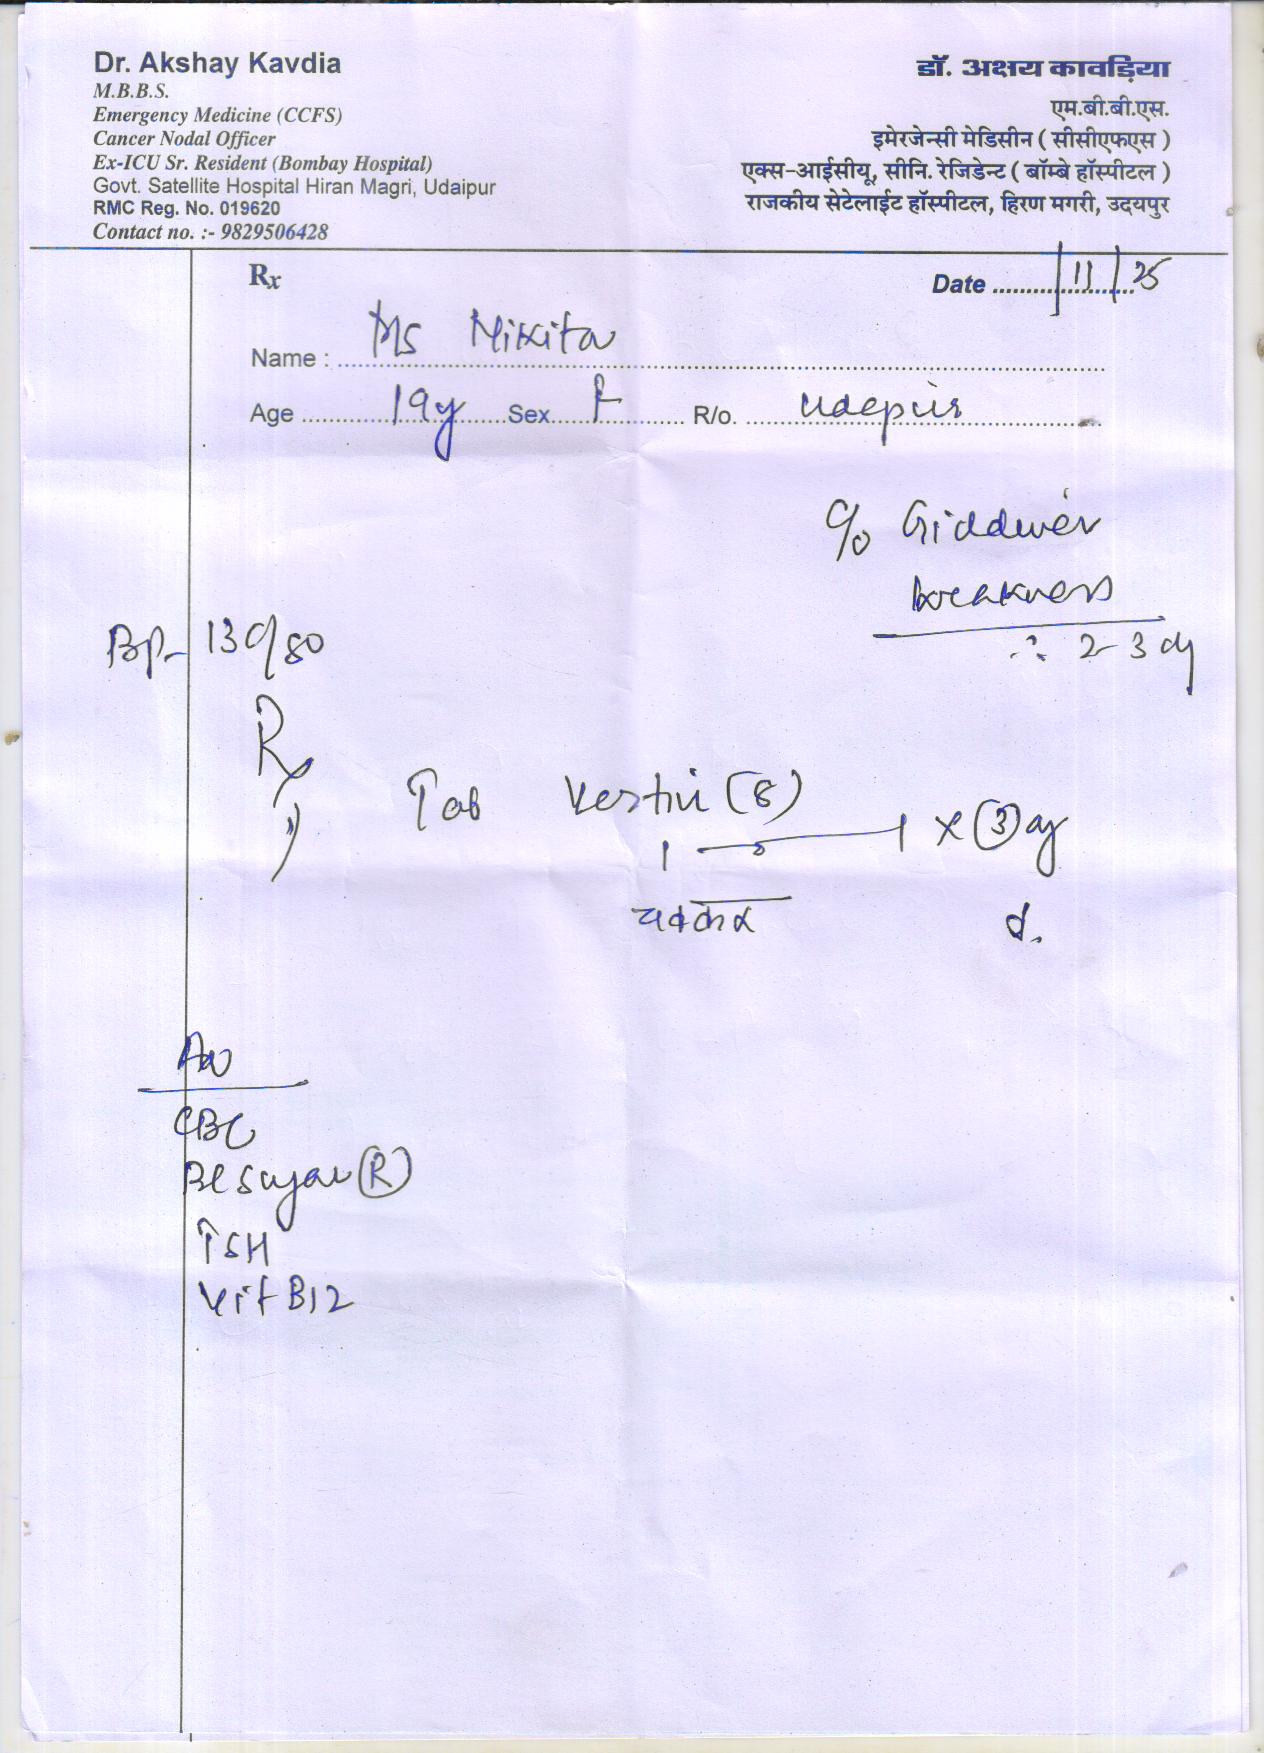 Dr. Akshay Kavdia
M.B.B.S.
Emergency Medicine (CCFS)
Cancer Nodal Officer
Ex-ICU Sr. Resident (Bombay Hospital)
Govt. Satellite Hospital Hiran Magri, Udaipur
RMC Reg. No. 019620
Contact no. :- 9829506428
डॉ. अक्षय कावड़िया
एम.बी.बी.एस.
इमेरजेन्सी मेडिसीन ( सीसीएफएस )
एक्स-आईसीयू, सीनि. रेजिडेन्ट ( बॉम्बे हॉस्पीटल )
राजकीय सेटेलाईट हॉस्पीटल, हिरण मगरी, उदयपुर
Rx
Date / 11 / 25
Name : Ms Nikita
Age 19y Sex F R/o. Udepur
c/o Giddiness
weakness
∴ 2-3 dy
BP- 130/80
Rx
1) Tab Vertin (8)
1 — 1 x (3) dy
चक्कर
Adv
CBC
Bl sugar (R)
TSH
Vit B12